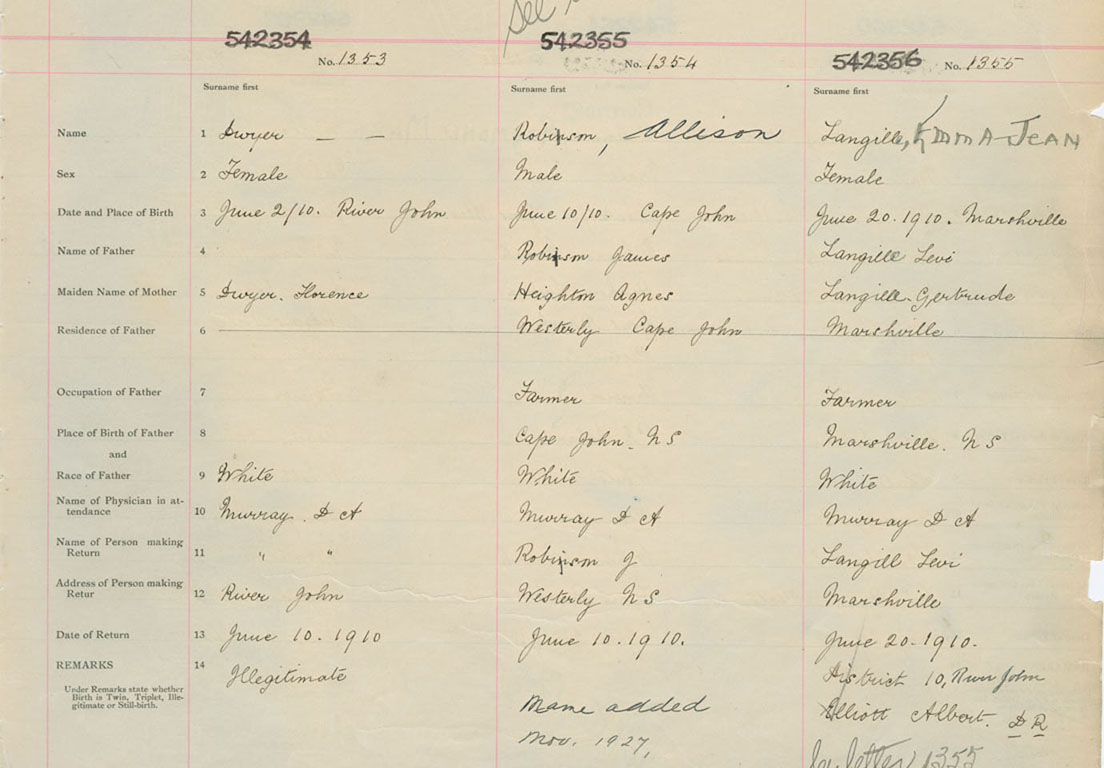 See
542354 542355 542356
No. 1353 No. 1354 No. 1355
Surname first Surname first Surname first
Name 1 Dwyer — — Robinson, Allison Langille, EMMA-JEAN
Sex 2 Female Male Female
Date and Place of Birth 3 June 2/10. River John June 10/10. Cape John June 20. 1910. Marshville
Name of Father 4 Robinson James Langille Levi
Maiden Name of Mother 5 Dwyer. Florence Heighton Agnes Langill. Gertrude
Residence of Father 6 Westerly Cape John Marshville
Occupation of Father 7 Farmer Farmer
Place of Birth of Father 8 Cape John. N S Marshville. N S
and
Race of Father 9 White White White
Name of Physician in at-
tendance 10 Murray. D A Murray D A Murray D A
Name of Person making
Return 11 " " Robinson J Langill Levi
Address of Person making
Retur 12 River John Westerly N S Marshville
Date of Return 13 June 10. 1910 June 10. 1910. June 20. 1910.
REMARKS 14 Illegitimate District 10, River John
Under Remarks state whether
Birth is Twin, Triplet, Ille-
gitimate or Still-birth.
Name added Elliott Albert. D R
Nov. 1927, letter 1355